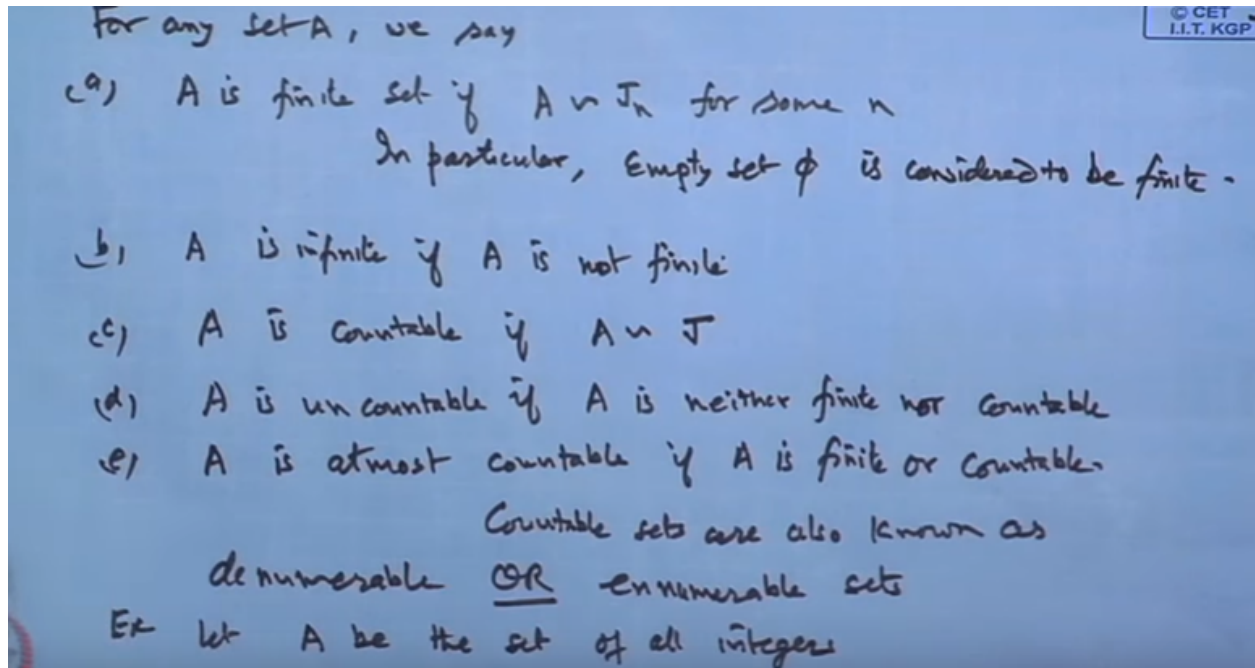 For any set A, we say
© CET
I.I.T. KGP
(a) A is finite set if A ~ Jn for some n
In particular, Empty set ϕ is considered to be finite.
(b) A is infinite if A is not finite
(c) A is countable if A ~ J
(d) A is uncountable if A is neither finite nor countable
(e) A is atmost countable if A is finite or countable.
Countable sets are also known as
denumerable OR ennumerable sets
Ex let A be the set of all integers